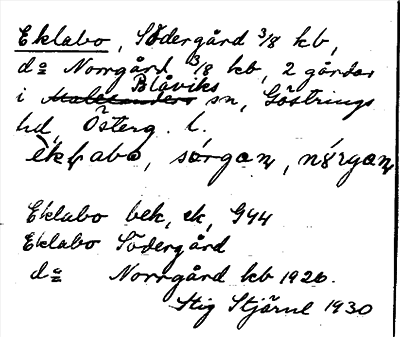 Eklabo, Södergård 3/8 kb,
do Norrgård 3/8 kb, 2 gårdar
Blåviks
i Malexanders sn, Göstrings
hd, Österg. l.
sǿrgaɳ, nǿrgaɳ
Eklabo bek, ek, G44
Eklabo Södergård
do Norrgård kb 1920.
Stig Stjärne 1930